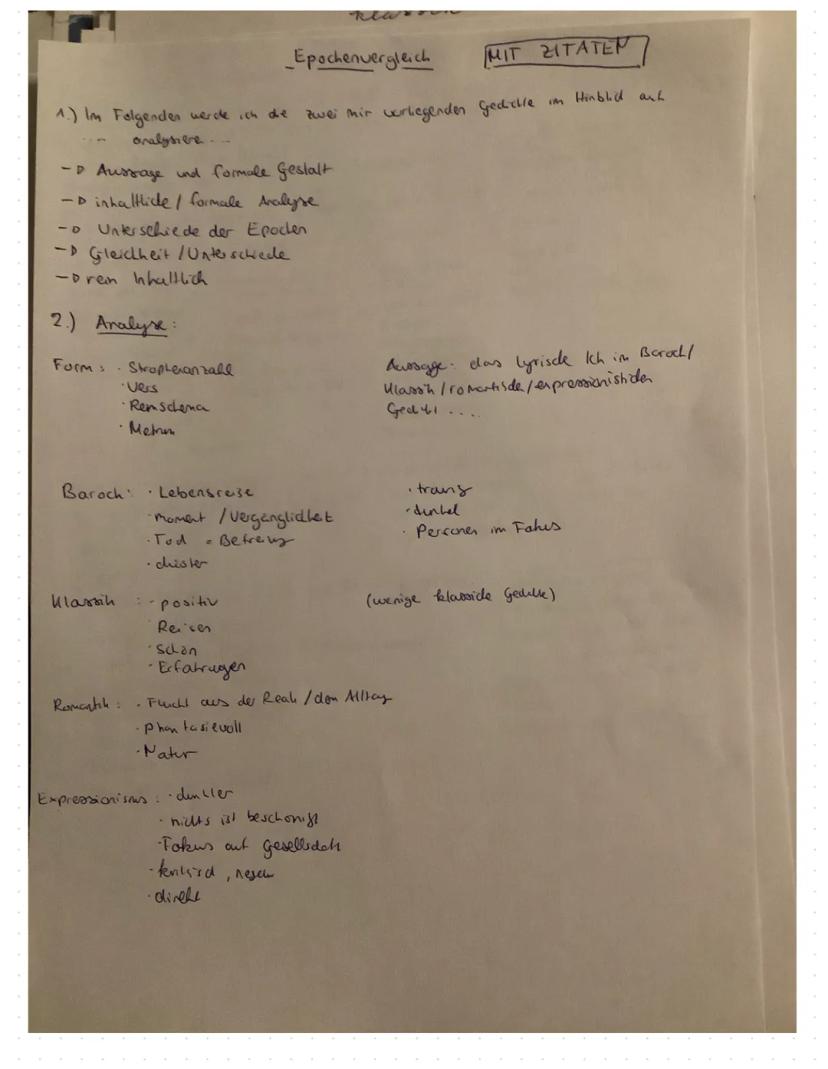 Epochenvergleich
MIT ZITATEN
1.) Im Folgenden werde ich die zwei mir vorliegenden Gedichte im Hinblick auf
... analysiere ...
-> Aussage und formale Gestalt
-> inhaltliche / formale Analyse
-> Unterschiede der Epochen
-> Gleichheit / Unterschiede
-> rein Inhaltlich
2.) Analyse:
Form: · Strophenanzahl
· Vers
· Reimschema
· Metrum
Aussage: das lyrische Ich im Barock/
Klassik / romantische / expressionistischen
Gedicht ....
Barock: · Lebensreise
· moment / Vergänglichkeit
· Tod = Befreiung
· düster
· traurig
· dunkel
· Personen im Fokus
Klassik : - positiv
Reisen
· schön
· Erfahrungen
(wenige klassische Gedichte)
Romantik : · Flucht aus der Reali / dem Alltag
· phantasievoll
· Natur
Expressionismus : · dunkler
· nichts ist beschönigt
· Fokus auf Gesellschaft
· kritisch,
· direkt